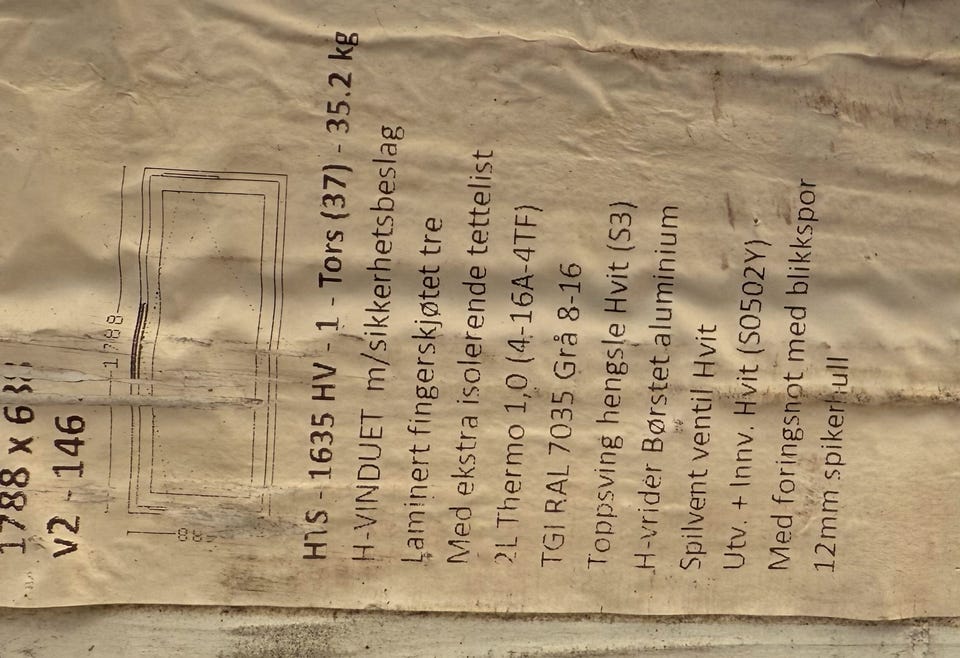 1788 x 63
V2 - 146
1788
88
HTS - 1635 HV - 1 - Tors (37) - 35.2 kg
H-VINDUET m/sikkerhetsbeslag
Laminert fingerskjøtet tre
Med ekstra isolerende tettelist
2L Thermo 1,0 (4-16A-4TF)
TGI RAL 7035 Grå 8-16
Toppsving hengsle Hvit (S3)
H-vrider Børstet aluminium
Spilvent ventil Hvit
Utv. + Innv. Hvit (S0502Y)
Med foringsnot med blikkspor
12mm spikerhull